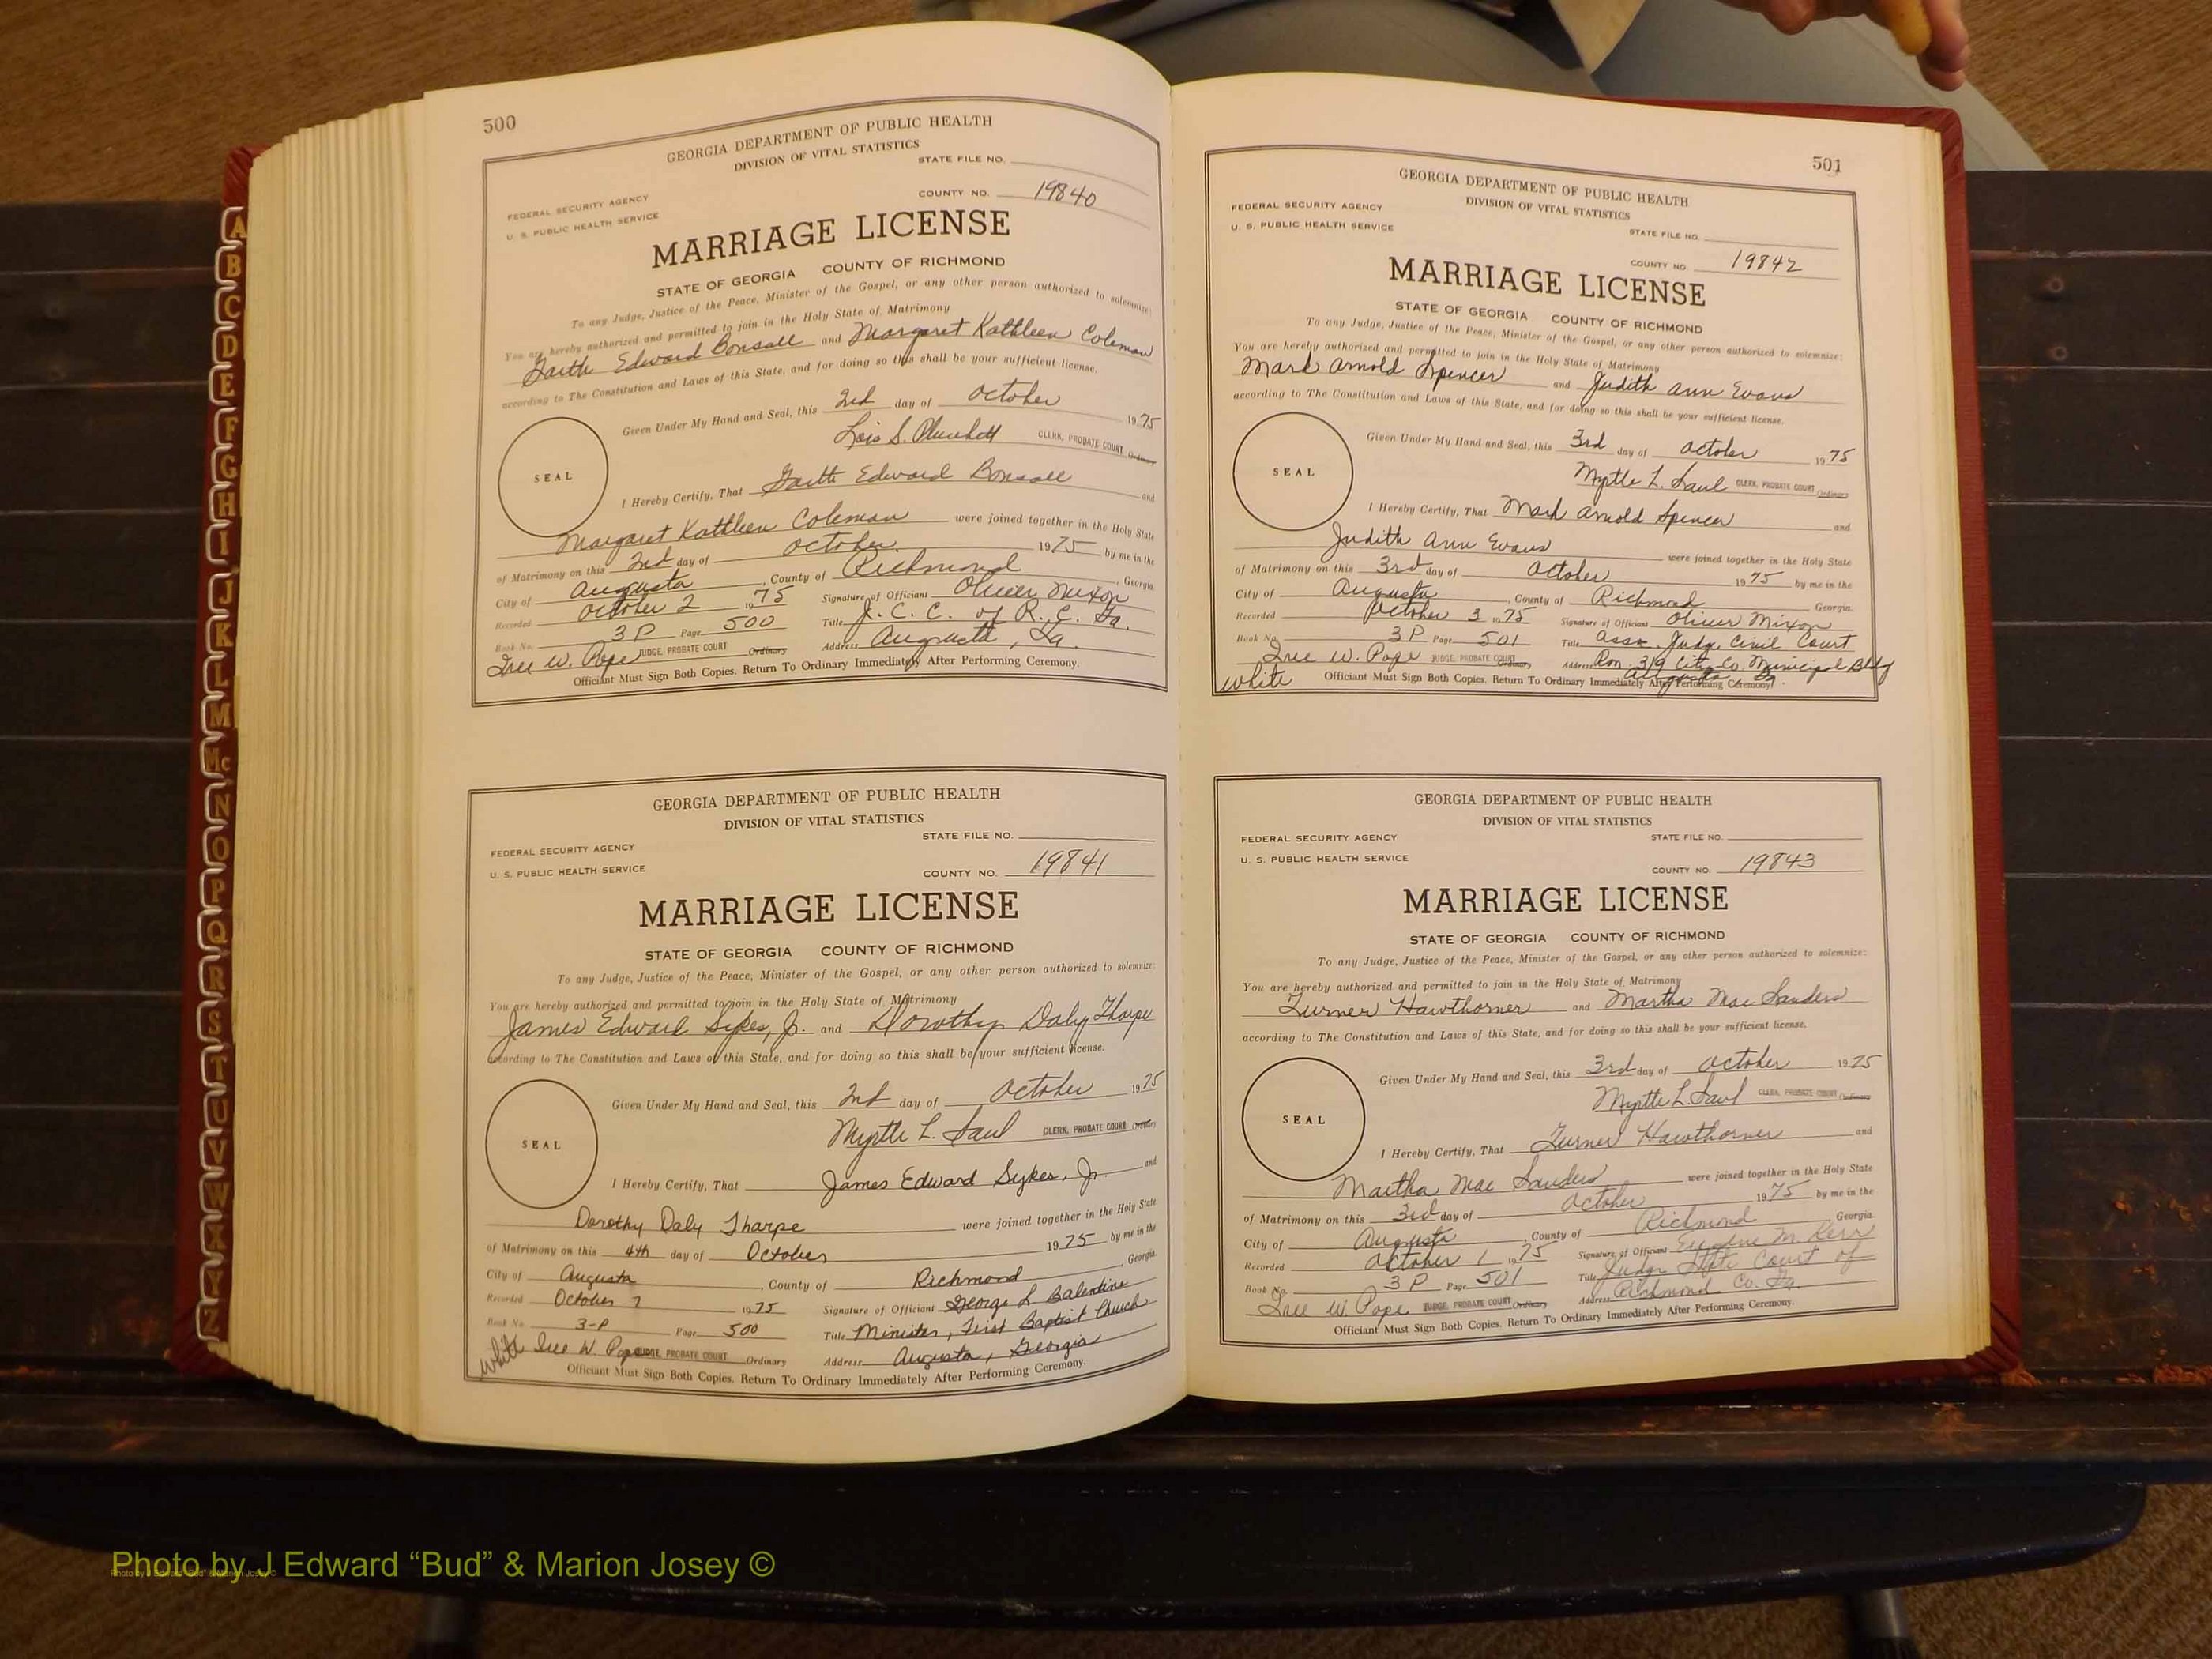 500
GEORGIA DEPARTMENT OF PUBLIC HEALTH
DIVISION OF VITAL STATISTICS
STATE FILE NO.
FEDERAL SECURITY AGENCY
U. S. PUBLIC HEALTH SERVICE
COUNTY NO. 19840
MARRIAGE LICENSE
STATE OF GEORGIA COUNTY OF RICHMOND
To any Judge, Justice of the Peace, Minister of the Gospel, or any other person authorized to solemnize:
You are hereby authorized and permitted to join in the Holy State of Matrimony
Garth Edward Bonsall and Margaret Kathleen Coleman
according to The Constitution and Laws of this State, and for doing so this shall be your sufficient license.
Given Under My Hand and Seal, this 2nd day of October 1975
Lois S. Plunkett CLERK, PROBATE COURT Ordinary
SEAL
I Hereby Certify, That Garth Edward Bonsall and
Margaret Kathleen Coleman were joined together in the Holy State
of Matrimony on this 2nd day of October 1975 by me in the
City of Augusta, County of Richmond, Georgia
Recorded October 2 1975 Signature of Officiant Oliver Mixon
Book No. 3P Page 500 Title J. C. C. of R. C. Ga.
Address Augusta, Ga.
W. Pope JUDGE, PROBATE COURT Ordinary
Officiant Must Sign Both Copies. Return To Ordinary Immediately After Performing Ceremony.
GEORGIA DEPARTMENT OF PUBLIC HEALTH
DIVISION OF VITAL STATISTICS
STATE FILE NO.
FEDERAL SECURITY AGENCY
U. S. PUBLIC HEALTH SERVICE
COUNTY NO. 19841
MARRIAGE LICENSE
STATE OF GEORGIA COUNTY OF RICHMOND
To any Judge, Justice of the Peace, Minister of the Gospel, or any other person authorized to solemnize:
You are hereby authorized and permitted to join in the Holy State of Matrimony
James Edward Sykes, Jr. and Dorothy Daly Tharpe
according to The Constitution and Laws of this State, and for doing so this shall be your sufficient license.
Given Under My Hand and Seal, this 2nd day of October 1975
Myrtle L. Saul CLERK, PROBATE COURT Ordinary
SEAL
I Hereby Certify, That James Edward Sykes, Jr. and
Dorothy Daly Tharpe were joined together in the Holy State
of Matrimony on this 4th day of October 1975 by me in the
City of Augusta, County of Richmond, Georgia
Recorded October 7 1975 Signature of Officiant George L Balentine
Book No. 3-P Page 500 Title Minister, First Baptist Church
white W. Pope JUDGE, PROBATE COURT Ordinary Address Augusta, Georgia
Officiant Must Sign Both Copies. Return To Ordinary Immediately After Performing Ceremony.
501
GEORGIA DEPARTMENT OF PUBLIC HEALTH
DIVISION OF VITAL STATISTICS
FEDERAL SECURITY AGENCY
U. S. PUBLIC HEALTH SERVICE
STATE FILE NO.
COUNTY NO. 19842
MARRIAGE LICENSE
STATE OF GEORGIA COUNTY OF RICHMOND
To any Judge, Justice of the Peace, Minister of the Gospel, or any other person authorized to solemnize:
You are hereby authorized and permitted to join in the Holy State of Matrimony
Mark Arnold Spencer and Judith Ann Evans
according to The Constitution and Laws of this State, and for doing so this shall be your sufficient license.
Given Under My Hand and Seal, this 3rd day of October 1975
Myrtle L. Saul CLERK, PROBATE COURT Ordinary
SEAL
I Hereby Certify, That Mark Arnold Spencer and
Judith Ann Evans were joined together in the Holy State
of Matrimony on this 3rd day of October 1975 by me in the
City of Augusta, County of Richmond Georgia.
Recorded October 3 1975 Signature of Officiant Oliver Mixon
Book No. 3P Page 501 Title Asso. Judge Civil Court
W. Pope JUDGE, PROBATE COURT Ordinary Address Rm. 319 City-Co. Municipal Bldg
Augusta, Ga.
white Officiant Must Sign Both Copies. Return To Ordinary Immediately After Performing Ceremony.
GEORGIA DEPARTMENT OF PUBLIC HEALTH
DIVISION OF VITAL STATISTICS
FEDERAL SECURITY AGENCY
STATE FILE NO.
U. S. PUBLIC HEALTH SERVICE
COUNTY NO. 19843
MARRIAGE LICENSE
STATE OF GEORGIA COUNTY OF RICHMOND
To any Judge, Justice of the Peace, Minister of the Gospel, or any other person authorized to solemnize:
You are hereby authorized and permitted to join in the Holy State of Matrimony
Turner Hawthorner and Martha Mae Sanders
according to The Constitution and Laws of this State, and for doing so this shall be your sufficient license.
Given Under My Hand and Seal, this 3rd day of October 1975
Myrtle L. Saul CLERK, PROBATE COURT Ordinary
SEAL
I Hereby Certify, That Turner Hawthorner and
Martha Mae Sanders were joined together in the Holy State
of Matrimony on this 3rd day of October 1975 by me in the
City of Augusta, County of Richmond Georgia
Recorded October 1 1975 Signature of Officiant Eugene M. Kerr
Book No. 3P Page 501 Title Judge State Court of
Richmond Co. Ga.
W. Pope JUDGE, PROBATE COURT Ordinary Address
Officiant Must Sign Both Copies. Return To Ordinary Immediately After Performing Ceremony.
A
B
C
D
E
F
G
H
I
J
K
L
M
Mc
N
O
P
Q
R
S
T
U
V
W
X
Y
Z
Photo by J Edward “Bud” & Marion Josey ©
Photo by J Edward "Bud" & Marion Josey ©